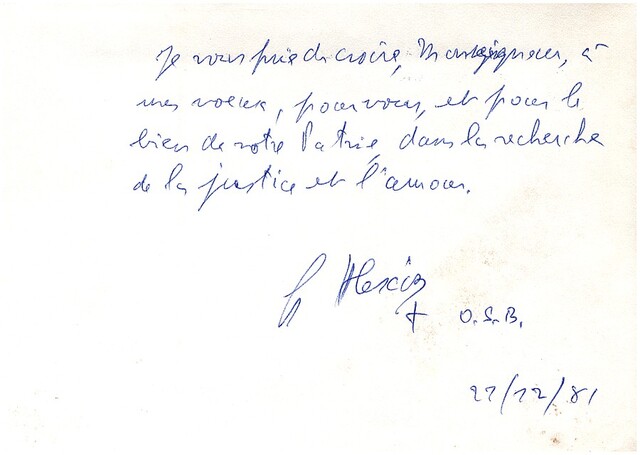 Je vous prie de croire, Monseigneur, à
mes voeux, pour vous, et pour le
bien de votre Patrie, dans la recherche
de la justice et l'amour.
+ O.S.B.
21/12/81